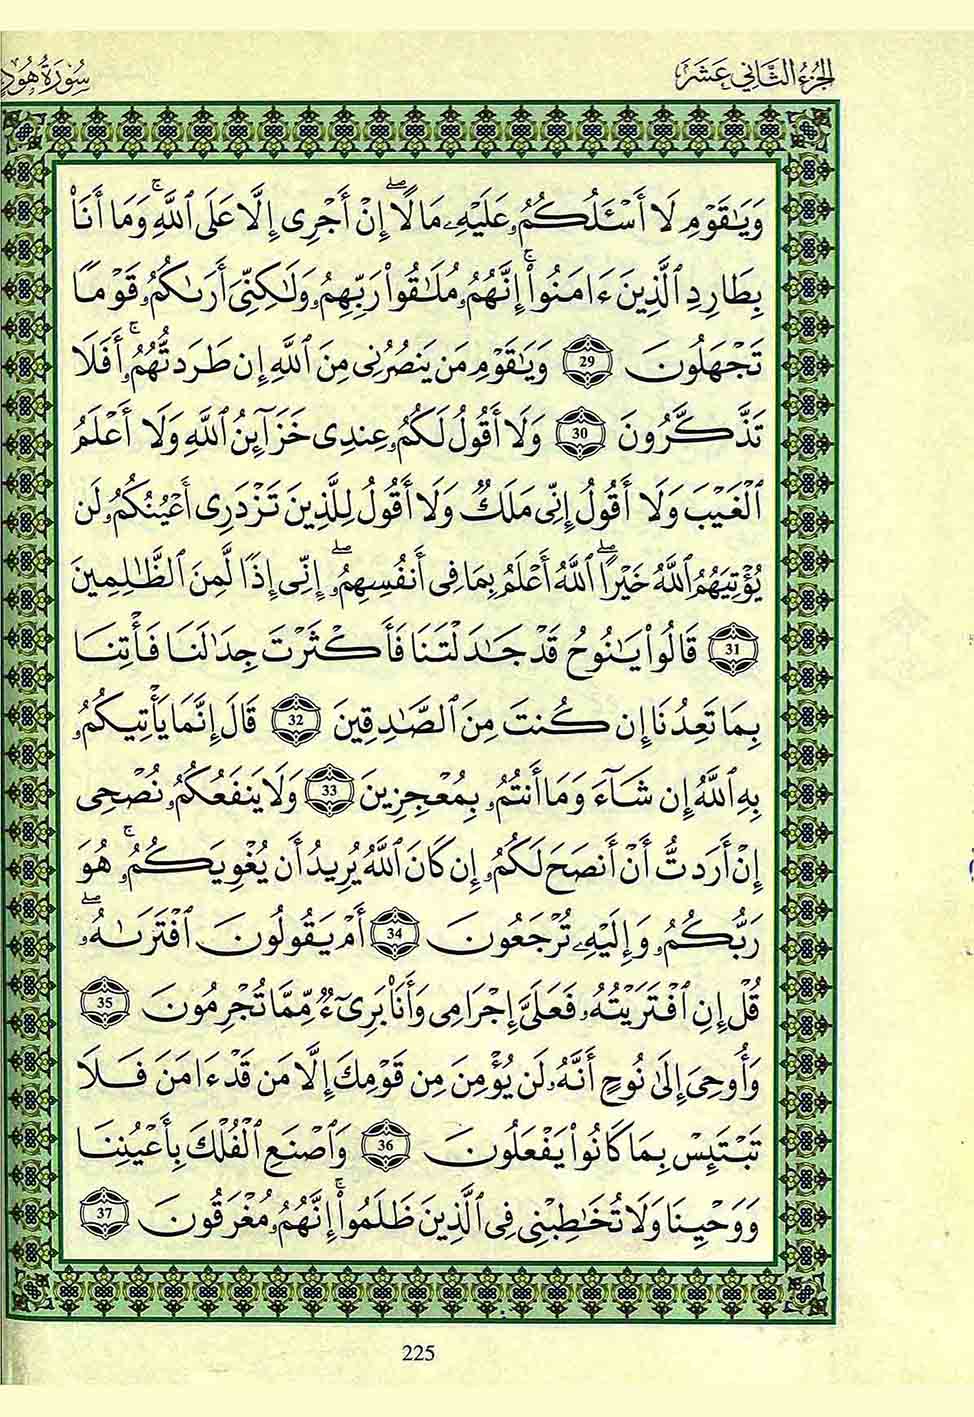 الجزء الثاني عشر
سورة هود
وَيَٰقَوْمِ لَآ أَسْـَٔلُكُمُۥ عَلَيْهِۦ مَالًاۖ إِنْ أَجْرِى إِلَّا عَلَى ٱللَّهِۚ وَمَآ أَنَا۠
بِطَارِدِ ٱلَّذِينَ ءَامَنُوٓا۟ۚ إِنَّهُمُۥ مُلَٰقُوا۟ رَبِّهِمُۥ وَلَٰكِنِّىٓ أَرَىٰكُمُۥ قَوْمًا
تَجْهَلُونَ 29 وَيَٰقَوْمِ مَن يَنصُرُنِى مِنَ ٱللَّهِ إِن طَرَدتُّهُمُۥٓۚ أَفَلَا
تَذَّكَّرُونَ 30 وَلَآ أَقُولُ لَكُمُۥ عِندِى خَزَآئِنُ ٱللَّهِ وَلَآ أَعْلَمُ
ٱلْغَيْبَ وَلَآ أَقُولُ إِنِّى مَلَكٌ وَلَآ أَقُولُ لِلَّذِينَ تَزْدَرِىٓ أَعْيُنُكُمُۥ لَن
يُؤْتِيَهُمُ ٱللَّهُ خَيْرًاۖ ٱللَّهُ أَعْلَمُ بِمَا فِىٓ أَنفُسِهِمُۥٓۖ إِنِّىٓ إِذًا لَّمِنَ ٱلظَّٰلِمِينَ
31 قَالُوا۟ يَٰنُوحُ قَدْ جَٰدَلْتَنَا فَأَكْثَرْتَ جِدَٰلَنَا فَأْتِنَا
بِمَا تَعِدُنَآ إِن كُنتَ مِنَ ٱلصَّٰدِقِينَ 32 قَالَ إِنَّمَا يَأْتِيكُمُۥ
بِهِ ٱللَّهُ إِن شَآءَ وَمَآ أَنتُمُۥ بِمُعْجِزِينَ 33 وَلَا يَنفَعُكُمُۥ نُصْحِىٓ
إِنْ أَرَدتُّ أَنْ أَنصَحَ لَكُمُۥٓ إِن كَانَ ٱللَّهُ يُرِيدُ أَن يُغْوِيَكُمُۥۚ هُوَ
رَبُّكُمُۥ وَإِلَيْهِۦ تُرْجَعُونَ 34 أَمْ يَقُولُونَ ٱفْتَرَىٰهُۥۖ
قُلْ إِنِ ٱفْتَرَيْتُهُۥ فَعَلَىَّ إِجْرَامِى وَأَنَا۠ بَرِىٓءٌ مِّمَّا تُجْرِمُونَ 35
وَأُوحِىَ إِلَىٰ نُوحٍ أَنَّهُۥ لَن يُؤْمِنَ مِن قَوْمِكَ إِلَّا مَن قَدْ ءَامَنَ فَلَا
تَبْتَئِسْ بِمَا كَانُوا۟ يَفْعَلُونَ 36 وَٱصْنَعِ ٱلْفُلْكَ بِأَعْيُنِنَا
وَوَحْيِنَا وَلَا تُخَٰطِبْنِى فِى ٱلَّذِينَ ظَلَمُوٓا۟ۚ إِنَّهُمُۥ مُغْرَقُونَ 37
225